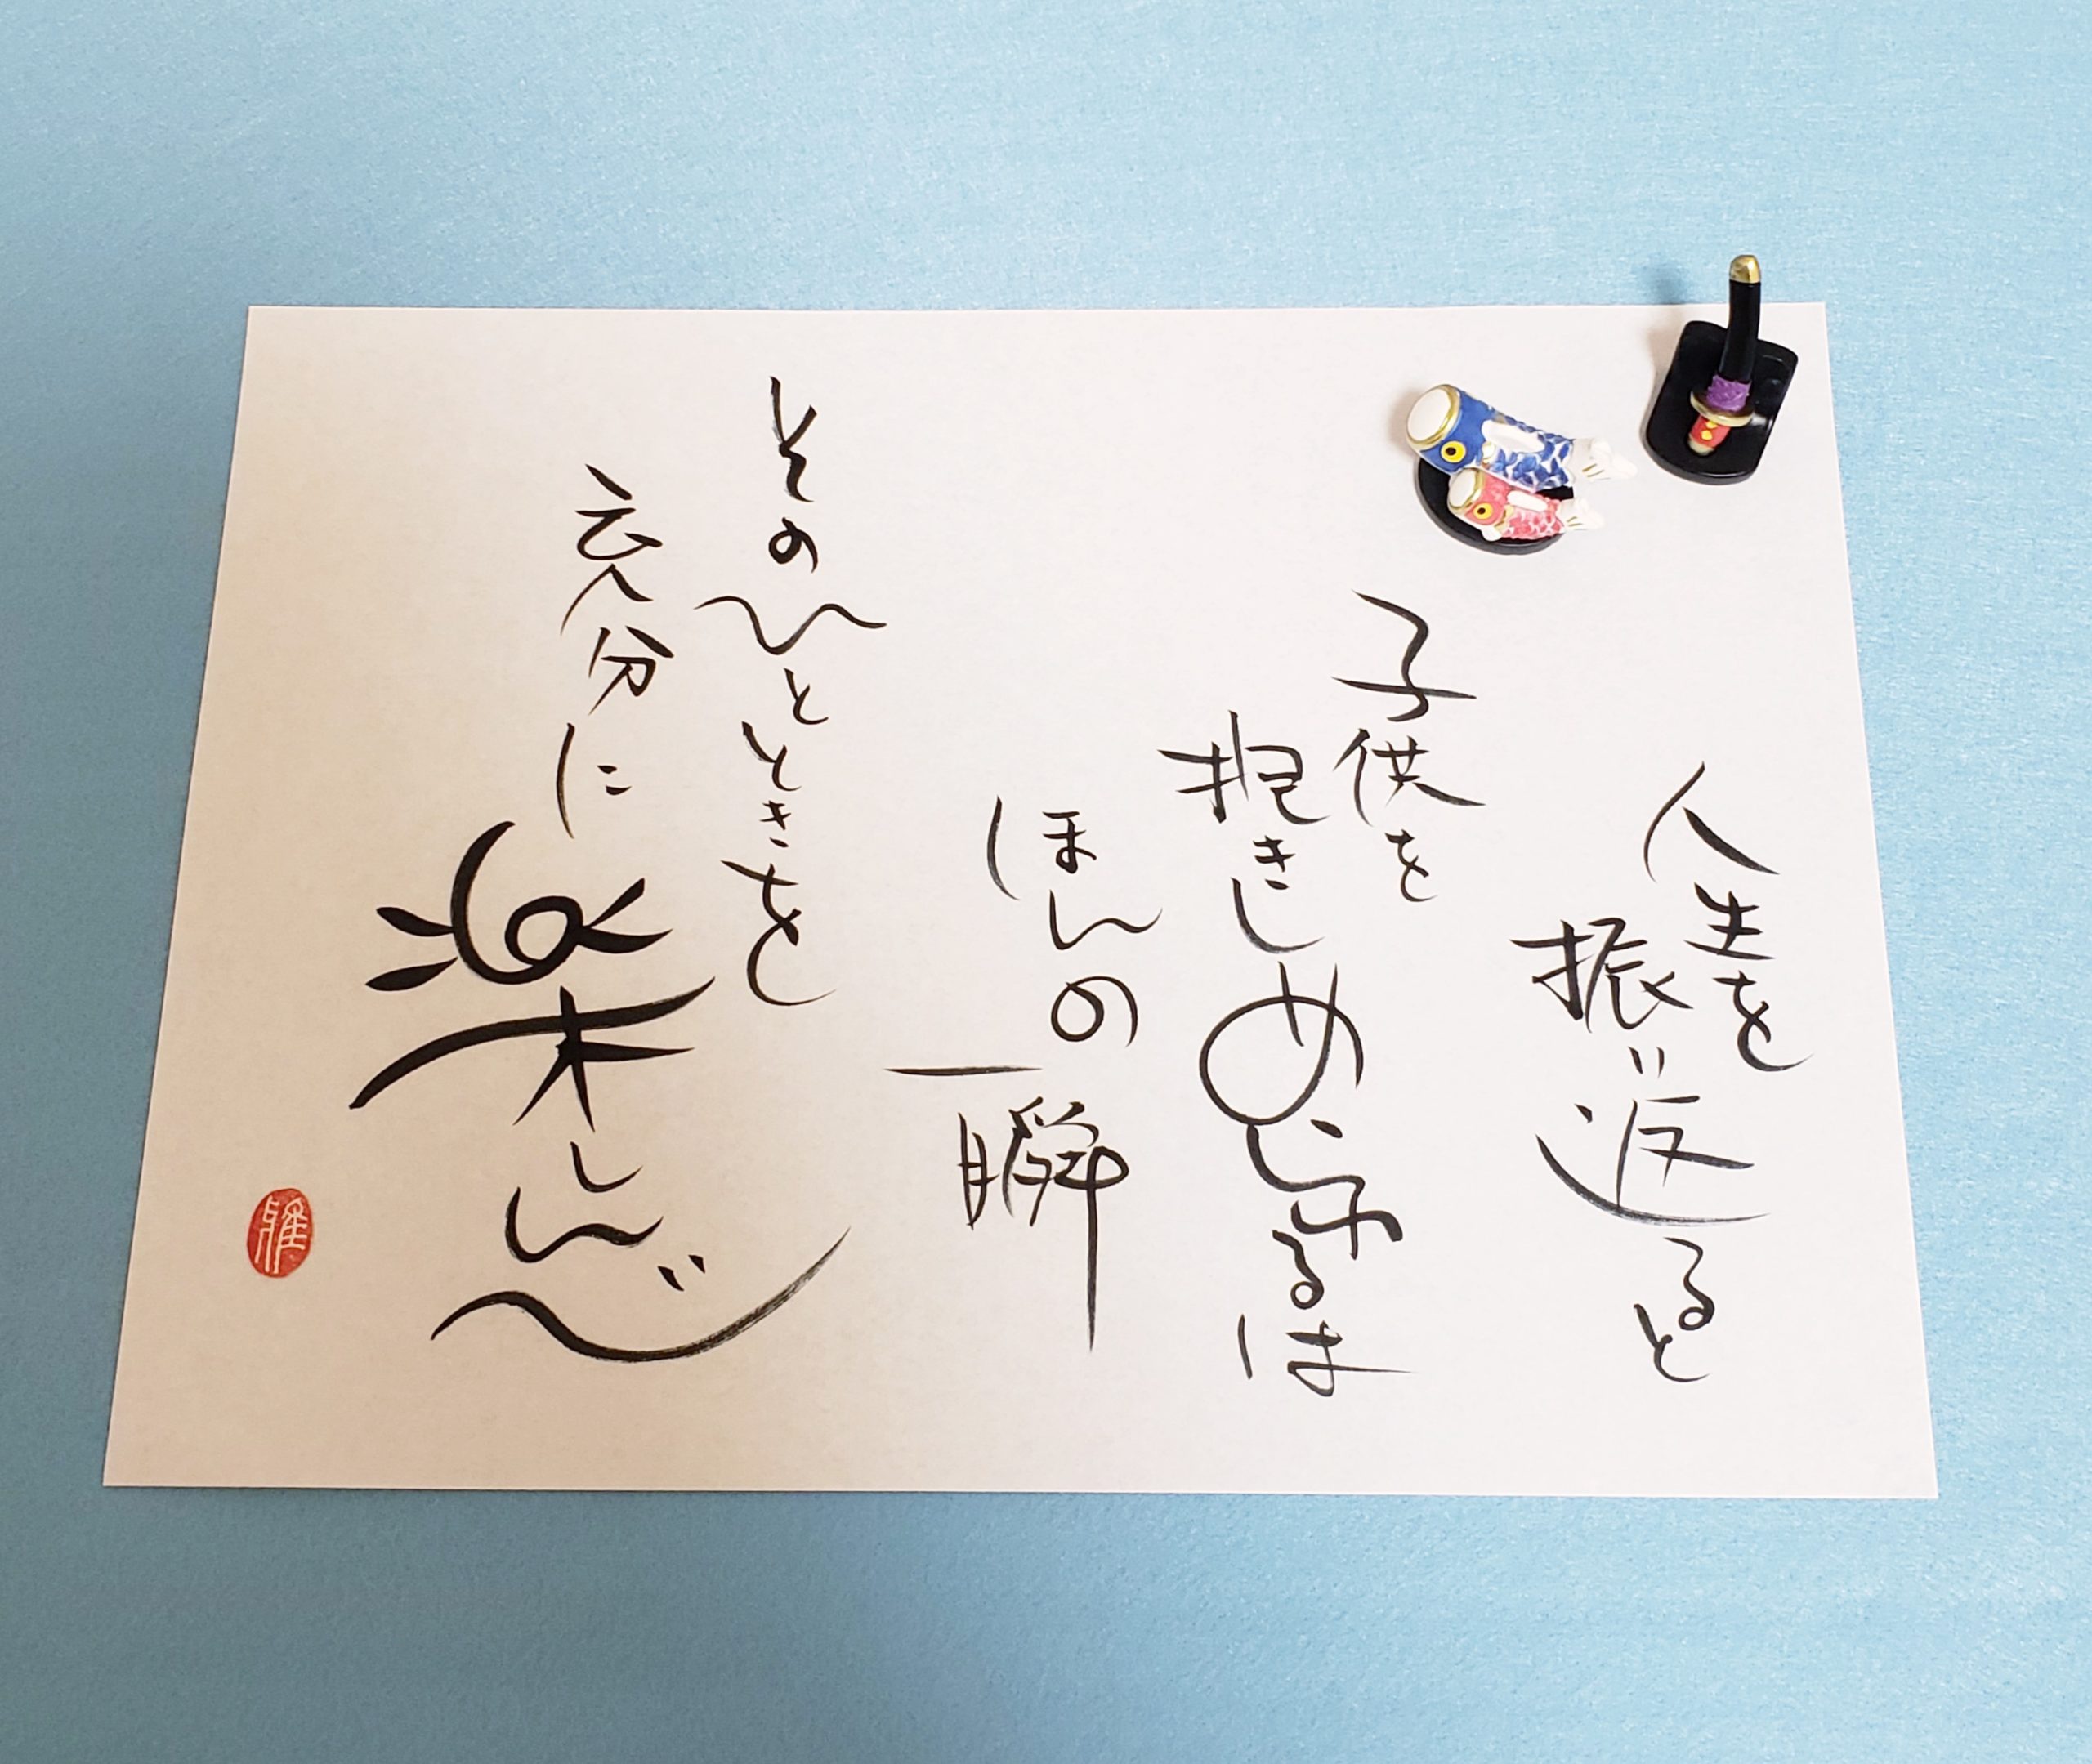 人生を
振り返ると
子供を
抱きしめられるは
ほんの
一瞬
そのひとときを
充分に楽しんで
雅